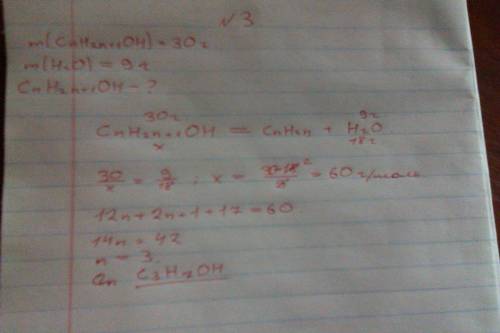 √3
m(CnH2n+1OH) = 30г
m(H2O) = 9г
CnH2n+1OH - ?
30г 9г
CnH2n+1OH = CnH2n + H2O
x 18г
30/x = 9/18 ; x = 30·18/9 = 60 г/моль
12n + 2n + 1 + 17 = 60
14n = 42
n = 3
C3H7OH